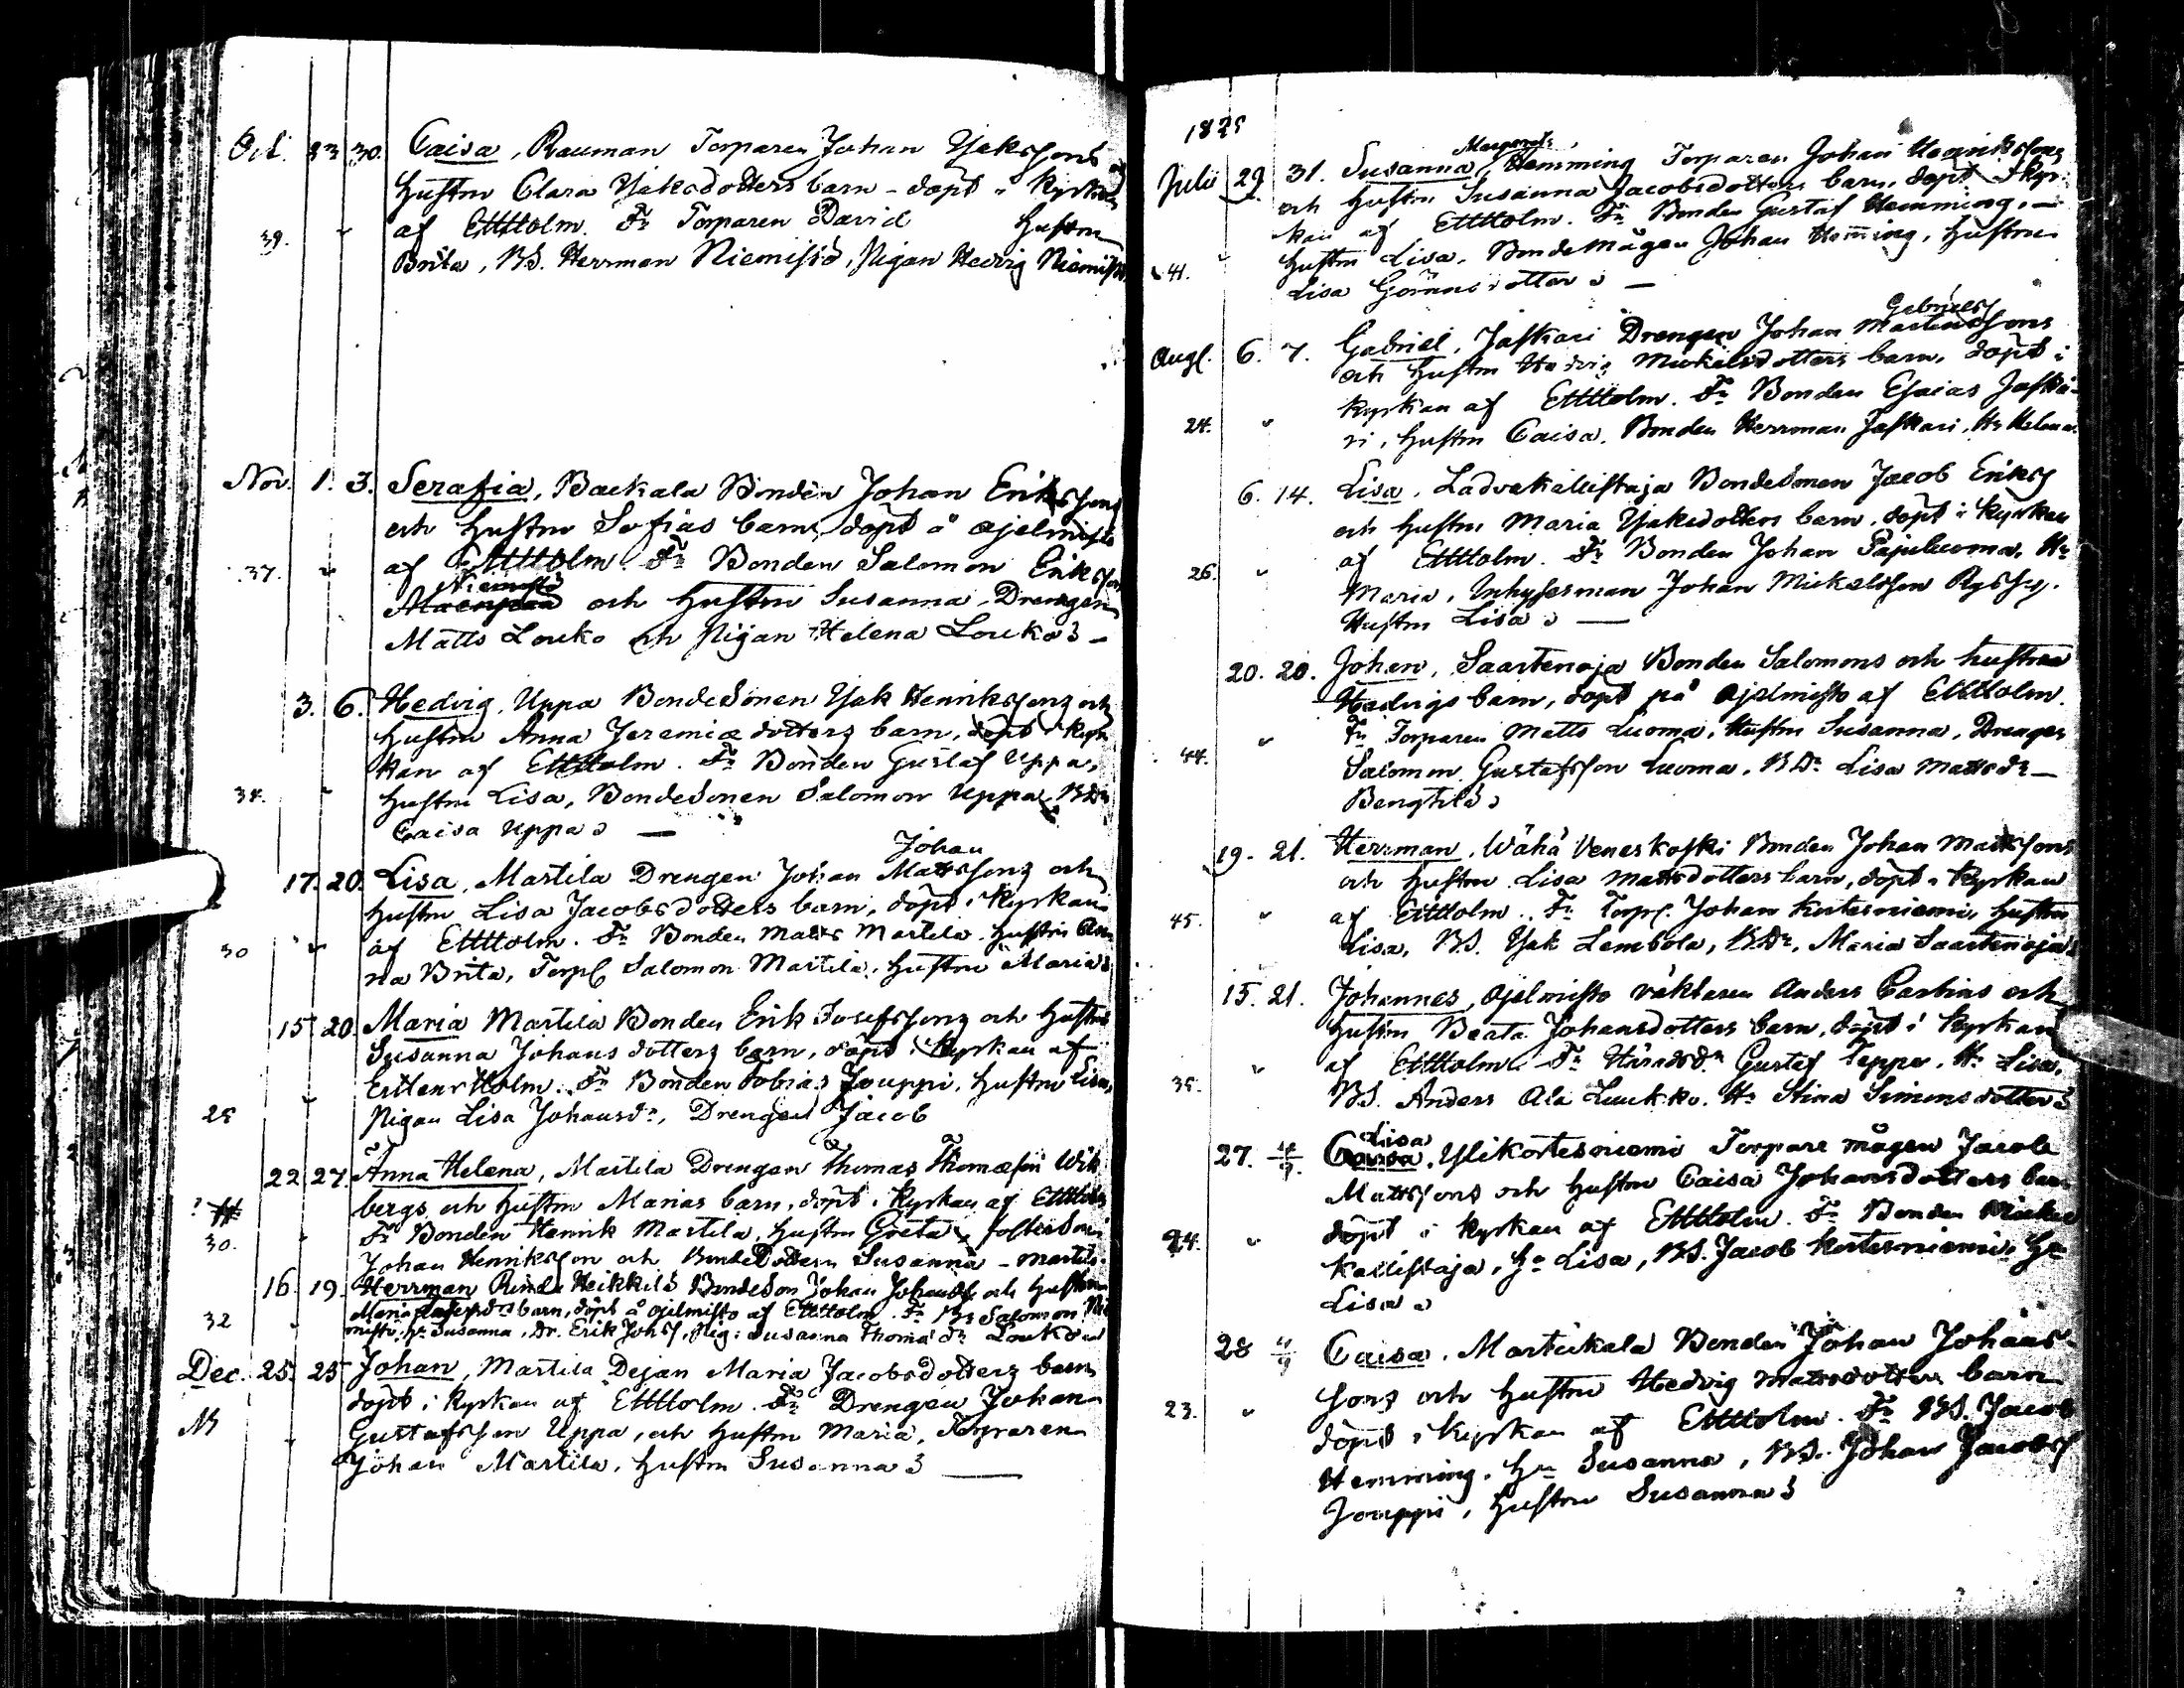 Oct. 23 30. Caisa, Rauman Torparen Johan Yakssons
hustru Clara Yaksdotters barn - döpt i kyrkan
39. af EHHolm. Fr Torparen David hustru
Brita, BS. Herrman Niemistö, Pigan Hedvig Niemistö
Nov. 1. 3. Serafia, Backala Bonden Johan Erikssons
och hustru Sofias barn, döpt å Ajelmisto
37. af EHHolm. Fr Bonden Salomon Eriksson
Niemistö
och hustru Susanna, Drengen
Matts Louko och Pigan Helena Louko
3. 6. Hedvig, Uppa Bondesonen Yak Henrikssons och
hustru Anna Jeremiædotters barn, döpt i kyr-
kan af EHHolm. Fr Bonden Gustaf Uppa,
34. hustru Lisa, Bondesonen Salomon Uppa, BDr
Caisa Uppa
Johan
17. 20. Lisa, Martila Drengen Johan Mattssons och
hustru Lisa Jacobsdotters barn, döpt i kyrkan
30 af EHHolm. Fr Bonden Matts Martila, hustru An-
na Brita, Torp. Salomon Martila, hustru Maria
15 20. Maria Martila Bonden Erik Josefssons och hustru
Susanna Johansdotters barn, döpt i kyrkan af
Holm. Fr Bonden Tobias Jouppi, hustru Lisa,
25 Pigan Lisa Johansdr, Drengen Jacob
22 27. Anna Helena, Martila Drengen Thomas Wik-
bergs och hustru Marias barn, döpt i kyrkan af EHHolm
30. Fr Bonden Henrik Martila, hustru Greta,
Johan Henriksson och Susanna Martila
16 19. Herrman Heikkilä Bondeson Johan och hustru
Maria barn, döpt å Ajelmisto af EHHolm. Fr BS Salomon
32 hu Susanna, Dr. Erik Johss, Pig: Susanna Thomædr Louko
Dec. 25. 25 Johan, Martila Dejan Maria Jacobsdotters barn
döpt i kyrkan af EHHolm. Fr Drengen Johan
Gustafsson Uppa, och hustru Maria, Torparen
Johan Martila, hustru Susanna
1825
Margareta
Julii 29 31. Susanna, Hemming Torparen Johan Henrikssons
och hustru Susanna Jacobsdotters barn, döpt i kyr-
kan af EHHolm. Fr Bonden Gustaf Hemming,
41. hustru Lisa, Bondemågen Johan Hemming, hustru
Lisa Göransdotter
Gabriels
Aug. 6. 7. Gabriel, Jaskari Drengen Johan Martinssons
och hustru Hedvig Mickelsdotters barn, döpt i
kyrkan af EHHolm. Fr Bonden Esaias Jaska-
24. ri, hustru Caisa, Bonden Herrman Jaskari, Hr Helena
6. 14. Lisa, Ladvakallistaja Bondesonen Jacob Eriks
och hustru Maria Yaksdotters barn, döpt i kyrkan
26. af EHHolm. Fr Bonden Johan Pajuluoma, Hr
Maria, Inhysesman Johan Mickelsson
Hustru Lisa
20. 20. Johan, Saartenoja Bonden Salomons och hustru
Hedvigs barn, döpt på Ajelmisto af EHHolm.
44. Fr Torparen Matts Luoma, hustru Susanna, Drengen
Salomon Gustafsson Luoma, BDr Lisa Mattsdr
Bengtilä
19. 21. Herrman, Wähä Veneskoski Bonden Johan Mattssons
och hustru Lisa Mattsdotters barn, döpt i kyrkan
45. af EHHolm. Fr Torp. Johan Kortesniemi, hustru
Lisa, BS. Yak Lembola, BDr, Maria Saartenoja
15. 21. Johannes, Ajelmisto väktaren Anders Carlins och
hustru Beata Johansdotters barn, döpt i kyrkan
35. af EHHolm. Fr Häradsd. Gustaf Teppo, Hr Lisa,
BS. Anders Ala Luukko. Hr Stina Simonsdotter
Lisa
27. 4/9. Caisa, Ylikortesniemi Torpare mågen Jacob
Mattssons och hustru Caisa Johansdotters barn
24. döpt i kyrkan af EHHolm. Fr Bonden Mickel
Kallistaja, Hr Lisa, BS. Jacob Kortesniemi, Hr
Lisa
28 4/9 Caisa, Martikala Bonden Johan Johans-
sons och hustru Hedvig Mattsdotters barn
23. döpt i kyrkan af EHHolm. Fr BS. Jacob
Hemming, Hr Susanna, BS. Johan Jacobss
Jouppi, hustru Susanna